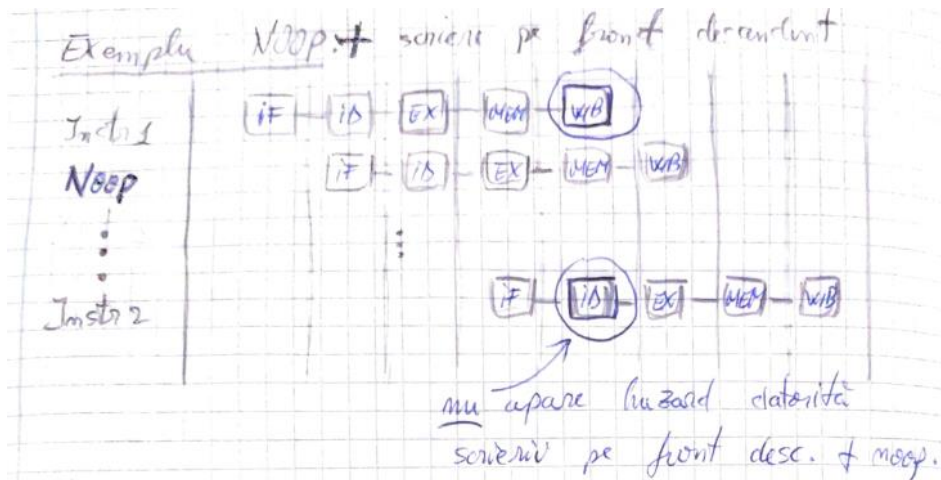 Exemplu NOOP + scriere pe front descendent
Instr 1 IF ID EX MEM WB
Noop IF ID EX MEM WB
Instr 2 IF ID EX MEM WB
nu apare hazard datorită
scrierii pe front desc. + noop.